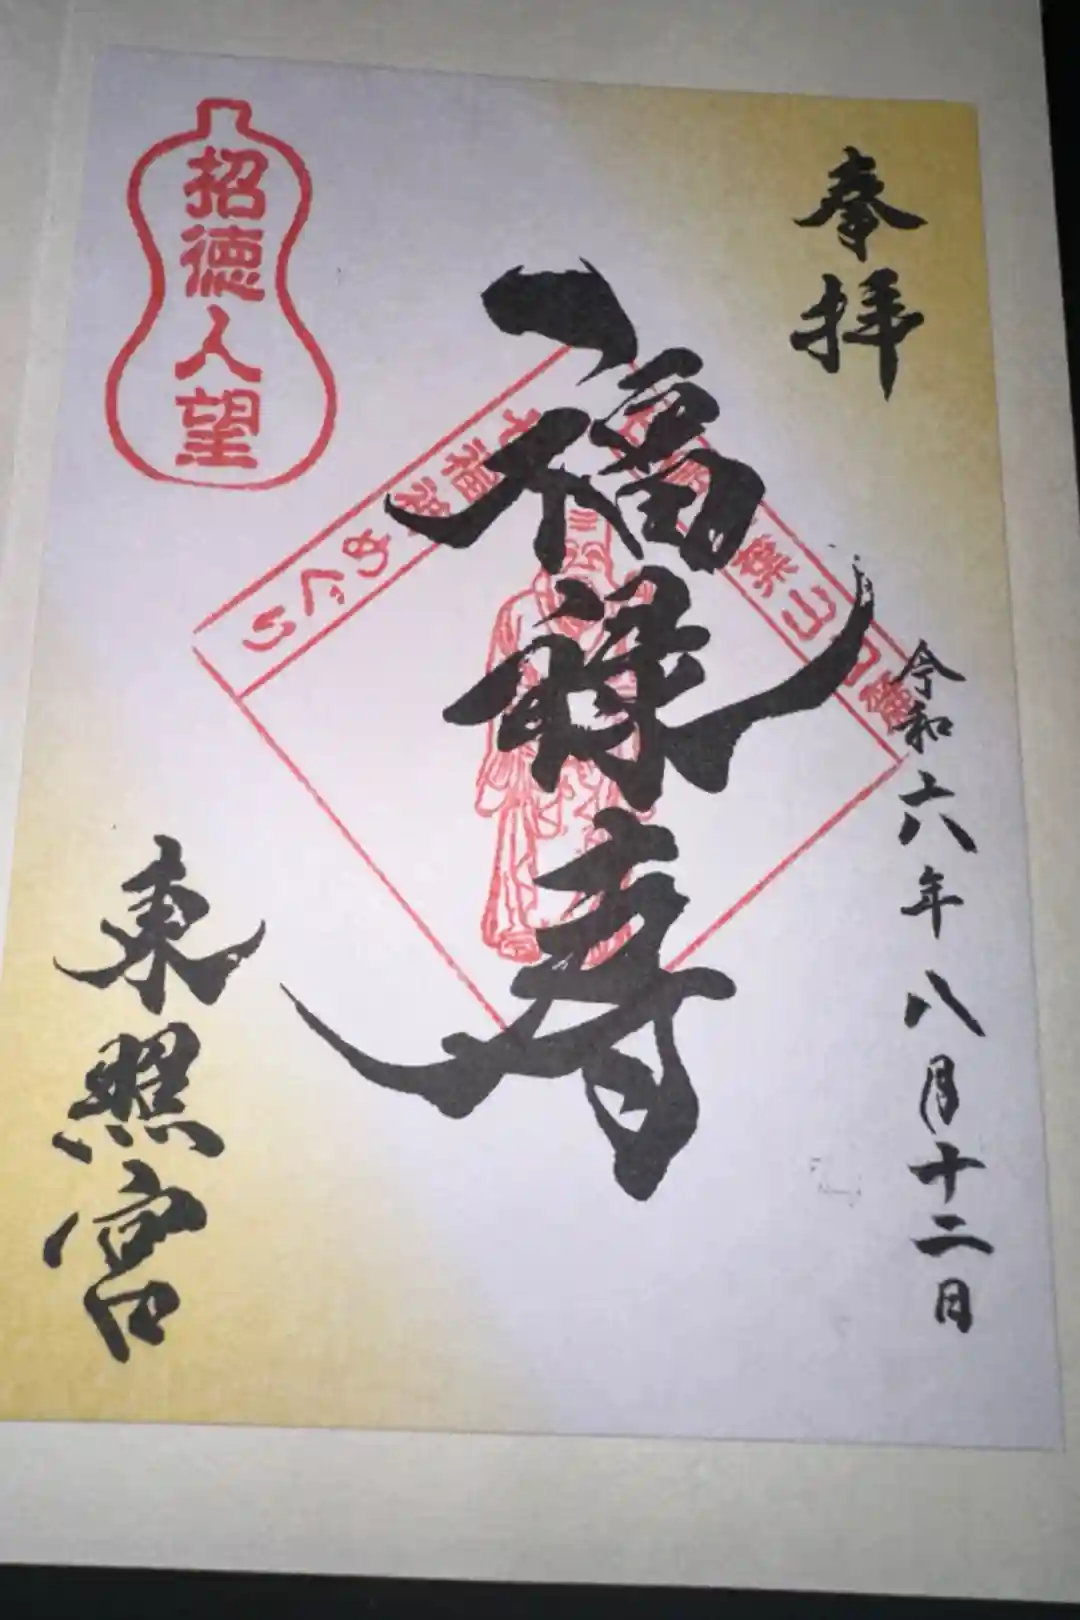 奉拝
令和六年八月十二日
福禄寿
東照宮
招徳人望
福神めぐり
葉山